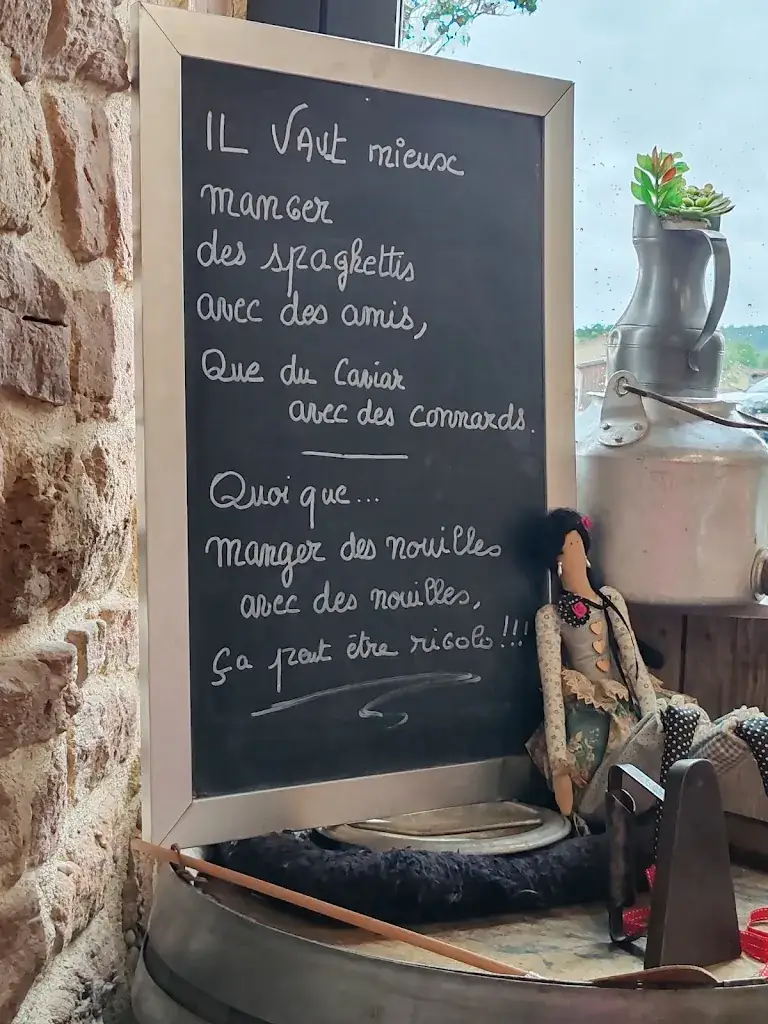 IL VAut mieux
manger
des spaghettis
avec des amis,
Que du Caviar
avec des connards.
Quoi que...
manger des nouilles
avec des nouilles,
ça peut être rigolo !!!